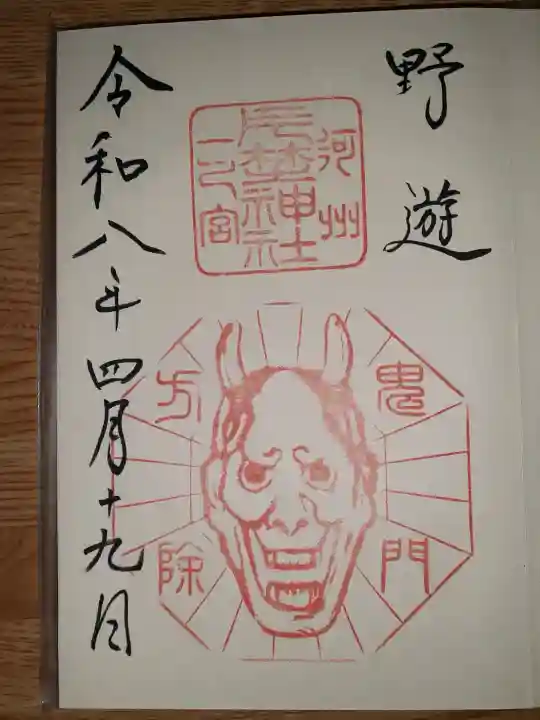 野遊
河州
片埜神社
一乃宮
鬼門
方除
令和八年四月十九日